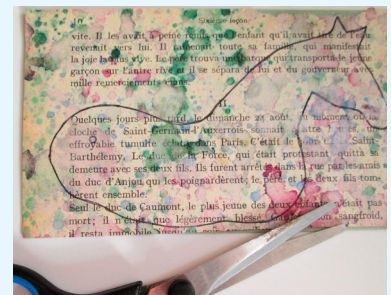 40 Sixième leçon.
vite. Il les avait à peine remis que l'enfant qu'il avait tiré de l'eau
revenait vers lui. Il ramenait toute sa famille, qui manifestait
la joie la plus vive. Le père trouva une barque qui transporta le jeune
garçon sur l'autre rive et il se sépara de lui et du gouverneur avec
mille remerciements émus.
II
Quelques jours plus tard, le dimanche 24 août, au moment où la
cloche de Saint-Germain-l'Auxerrois sonnait matines, un
effroyable tumulte éclata dans Paris. C'était le Saint-
Barthélemy. Le duc de la Force, qui était protestant quitta sa
demeure avec ses deux fils. Ils furent arrêtés dans la rue par les amis
du duc d'Anjou qui les poignardèrent; le père et les deux fils tom-
bèrent ensemble.
Seul le duc de Caumont, le plus jeune des deux enfants n'était pas
mort; il n'était que légèrement blessé. son sangfroid,
il resta immobile jusqu'au